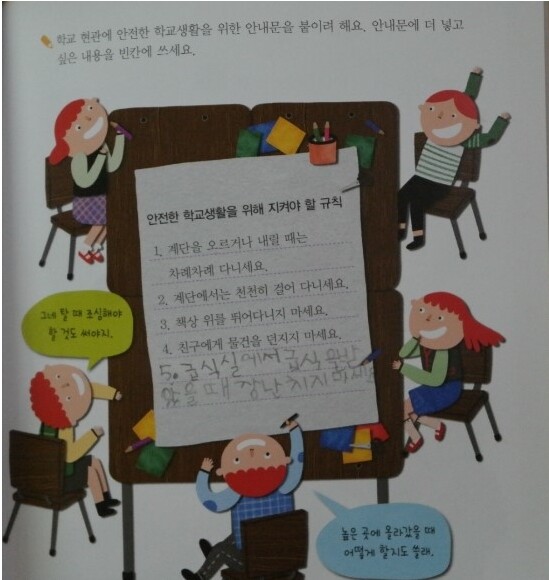 학교 현관에 안전한 학교생활을 위한 안내문을 붙이려 해요. 안내문에 더 넣고
싶은 내용을 빈칸에 쓰세요.
안전한 학교생활을 위해 지켜야 할 규칙
1. 계단을 오르거나 내릴 때는
차례차례 다니세요.
2. 계단에서는 천천히 걸어 다니세요.
3. 책상 위를 뛰어다니지 마세요.
4. 친구에게 물건을 던지지 마세요.
5. 급식실에서 급식
을때 장난치지 마세요
그네 탈 때 조심해야
할 것도 써야지.
높은 곳에 올라갔을 때
어떻게 할지도 쓸래.